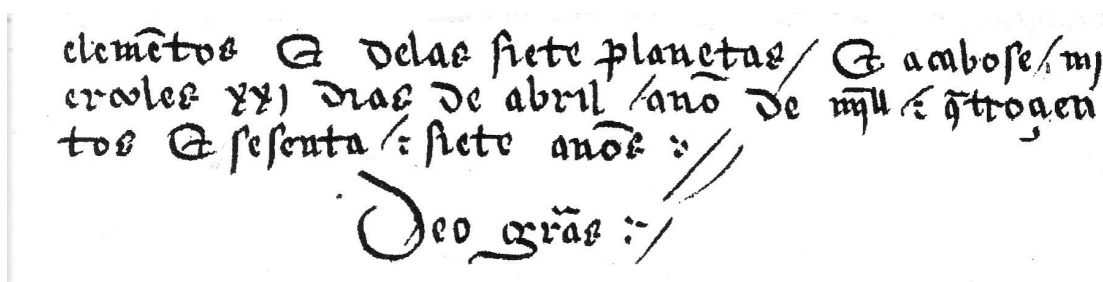 elemẽtos & delas siete planetas / & acabose /. mi
ercoles xxj dias de abril / año de mjll / : q̃trogen
tos & sesenta / : siete años :· //
Deo gr̃as :· /